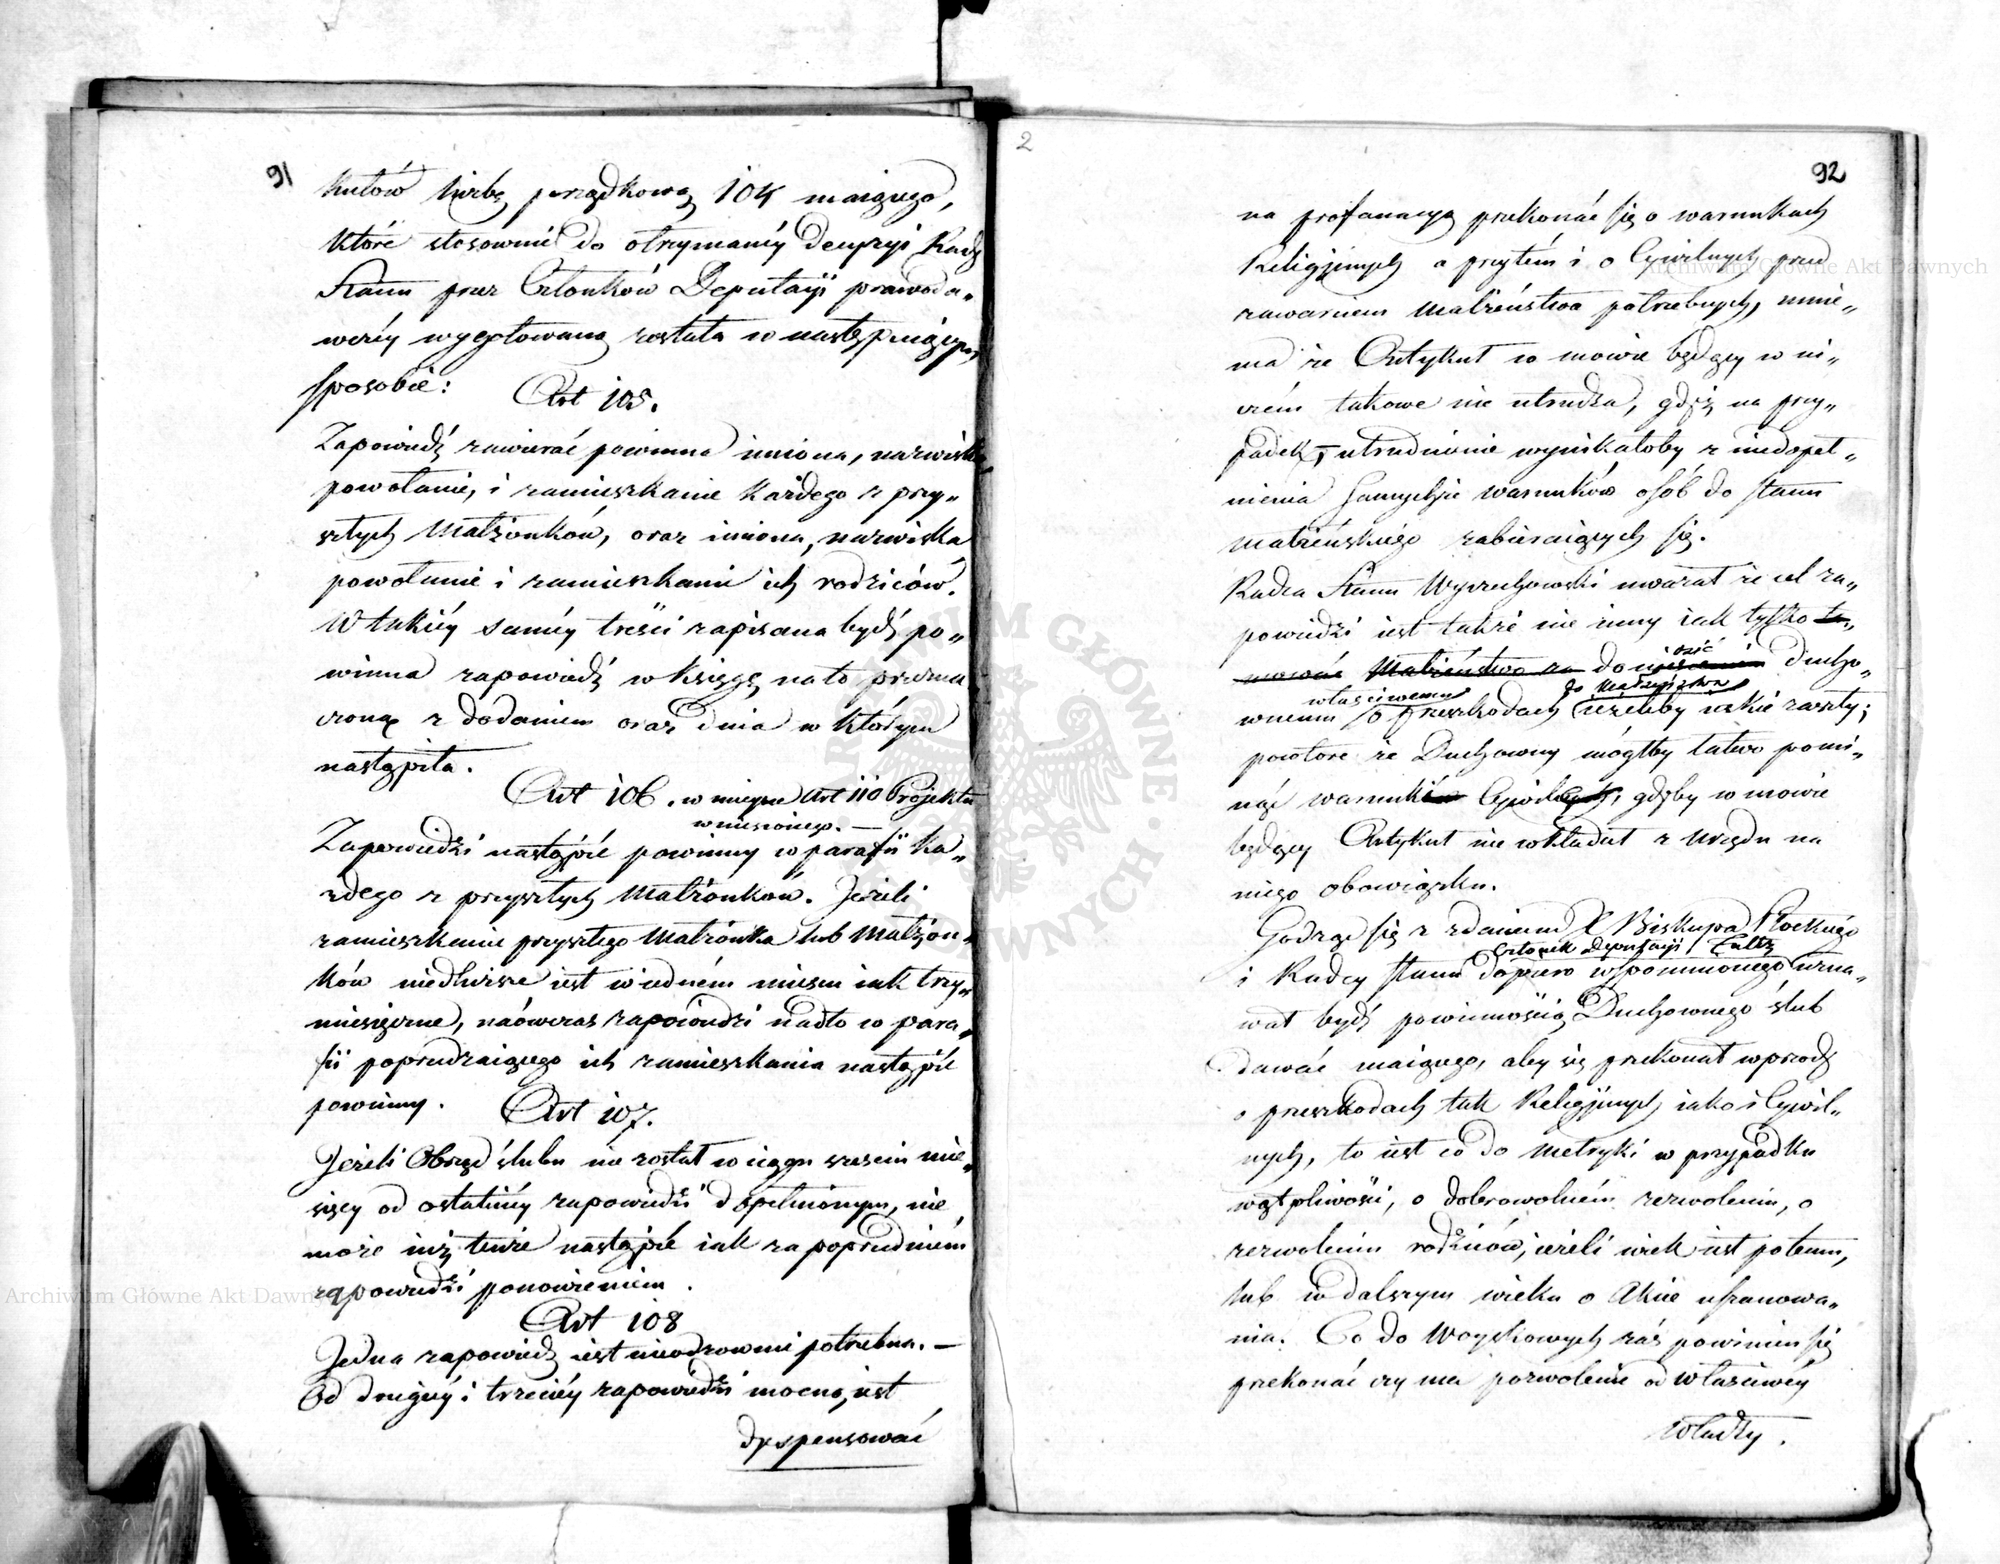 91
kułów liczbę porządkową 104 maiącego,
które stosownie do otrzymanéy decyzyi Rady
Stanu przez Członków Deputacyi prawoda„
wczéy wygotowaną została w następuiącym
sposobie:
Art 105.
Zapowiedź zawierać powinna imiona, nazwiska
powołanie, i zamieszkanie każdego z przy„
szłych Małżonków, oraz imiona, nazwiska
powołanie i zamieszkanie ich rodziców.
W takiéy saméy treści zapisana bydź po„
winna zapowiedź w księgę na to przezna
czoną z dodaniem oraz dnia w którym
nastąpiła.
Art 106. w mieysce Art 110 Projektu
wniesionego. —
Zapowiedzi nastąpić powinny w parafii ka„
żdego z przyszłych Małżonków. Jeżeli
zamieszkanie przyszłego Małżonka lub Małżon„
ków niedłuższe iest w iedném mieyscu iak trzy„
miesięczne, naówczas zapowiedzi nadto w para„
fii poprzedzaiącego ich zamieszkania nastąpić
powinny.
Art 107.
Jeżeli Obrząd ślubu nie został w ciągu sześciu mie„
sięcy od ostatniéy zapowiedzi dopełnionym, nie
może iuż tenże nastąpić iak za poprzedniém
zapowiedzi ponowieniem.
Art 108
Jedna zapowiedź iest nieodzownie potrzebna. —
Od drugiéy i trzeciéy zapowiedzi mocną iest
dyspensować
2
92
na profanacyą przekonać się o warunkach
Religijnych a przytém i o Cywilnych przed
zawarciem Małżeństwa potrzebnych, mnie„
ma że Artykuł w mowie będący w ni„
czém takowe nie utrudza, gdyż na przy„
padek, utrudnienie wynikałoby z niedopeł„
nienia samychże warunków osób do stanu
małżeńskiego zabieraiących się.
Radca Stanu Wyczechowski uważał że cel za„
powiedzi iest także nie inny iak tylko ta„
mować Małżeństwo za doniesienie Ducho„
osić
właściwemu do Małżeństwa
wnemu o przeszkodach ieżeliby iakie zaszły;
powtóre że Duchowny mógłby łatwo pomi„
nąć warunki Cywilne, gdyby w mowie
będący Artykuł nie wkładał z Urzędu na
niego obowiązku.
Godząc się z zdaniem X Biskupa Płockiego
Członek Deputacyi
i Radcy Stanu dopiero wspomnionego uzna„
wał bydź powinnością Duchownego ślub
dawać maiącego, aby się przekonał wprzódy
o przeszkodach tak Religijnych iako i Cywil„
nych, to iest co do metryki w przypadku
wątpliwości, o dobrowolném zezwoleniu, o
zezwoleniu rodziców, ieżeli wiek iest potemu,
lub w dalszym wieku o Akcie uszanowa„
nia. Co do Woyskowych zaś powinien się
przekonać czy ma pozwolenie od właściwéy
Władzy.
Archiwum Główne Akt Dawnych
Archiwum Główne Akt Dawnych
ARCHIWUM GŁÓWNE AKT DAWNYCH